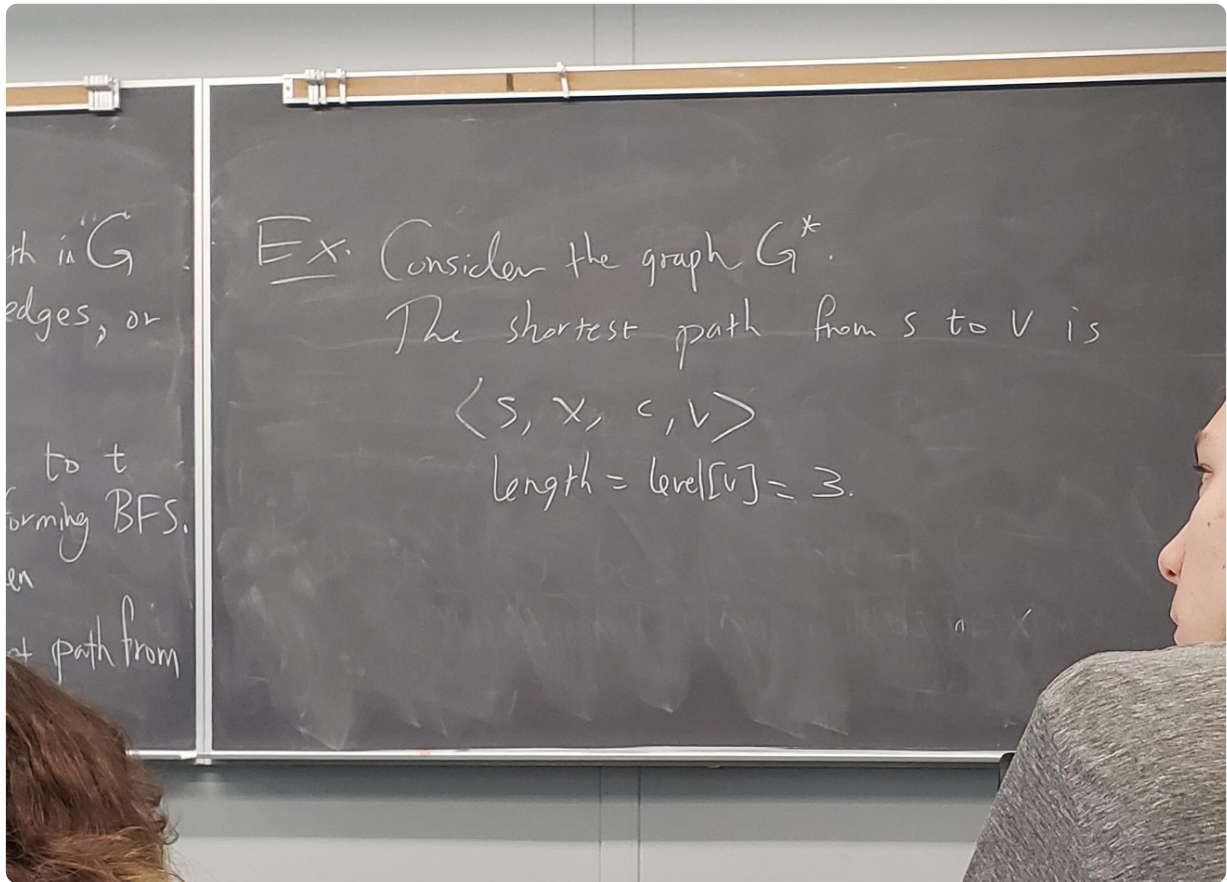 in G
edges, or
to t
BFS.
path from
Ex. Consider the graph G*.
The shortest path from s to v is
<s, x, c, v>
length = level[v] = 3.